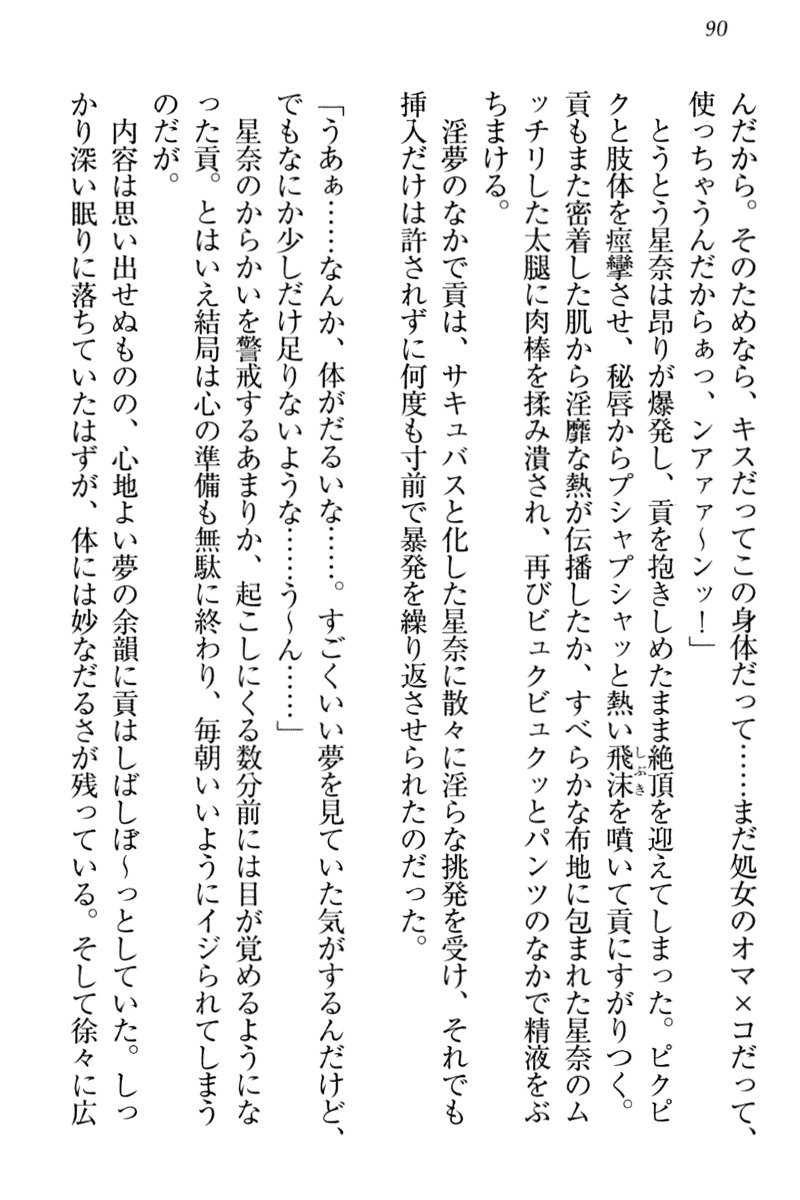 90
んだから。そのためなら、キスだってこの身体だって……まだ処女のオマ×コだって、
使っちゃうんだからぁっ、ンアァァ〜ンッ！」
　とうとう星奈は昂りが爆発し、貢を抱きしめたまま絶頂を迎えてしまった。ピクピ
クと肢体を痙攣させ、秘唇からプシャプシャッと熱い飛沫（しぶき）を噴いて貢にすがりつく。
貢もまた密着した肌から淫靡な熱が伝播したか、すべらかな布地に包まれた星奈のム
ッチリした太腿に肉棒を揉み潰され、再びビュクビュクッとパンツのなかで精液をぶ
ちまける。
　淫夢のなかで貢は、サキュバスと化した星奈に散々に淫らな挑発を受け、それでも
挿入だけは許されずに何度も寸前で暴発を繰り返させられたのだった。
「うあぁ……なんか、体がだるいな……。すごくいい夢を見ていた気がするんだけど、
でもなにか少しだけ足りないような……う〜ん……」
　星奈のからかいを警戒するあまりか、起こしにくる数分前には目が覚めるようにな
った貢。とはいえ結局は心の準備も無駄に終わり、毎朝いいようにイジられてしまう
のだが。
　内容は思い出せぬものの、心地よい夢の余韻に貢はしばしぼ〜っとしていた。しっ
かり深い眠りに落ちていたはずが、体には妙なだるさが残っている。そして徐々に広